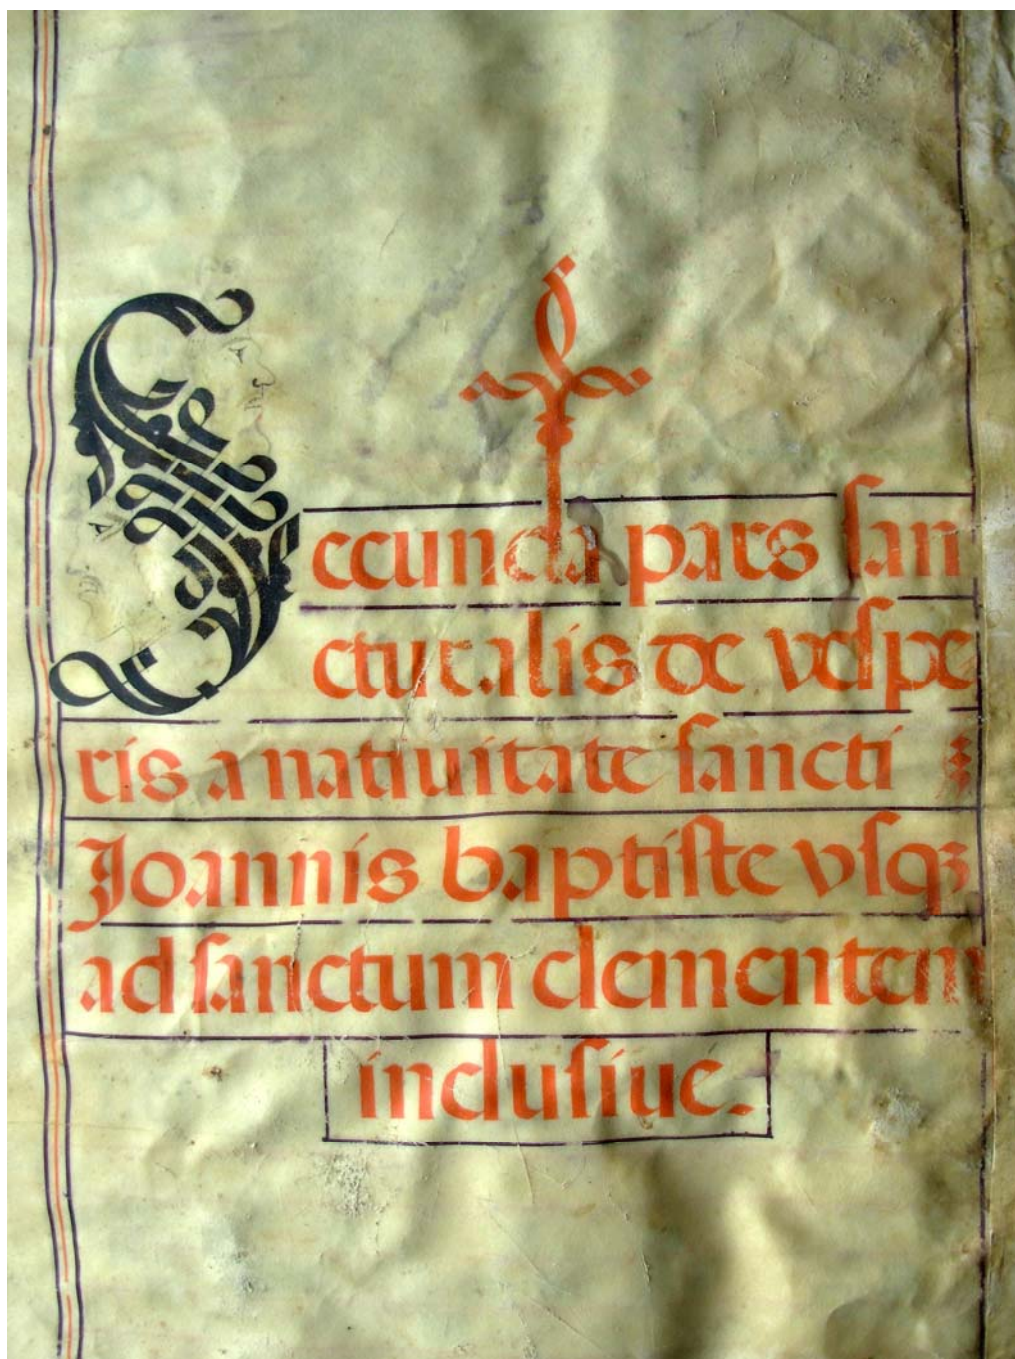 Secunda pars san
cturalis de vespe
ris a natiuitate sancti
Joannis baptiste vsqꝫ
ad sanctum clementem
inclusiue.